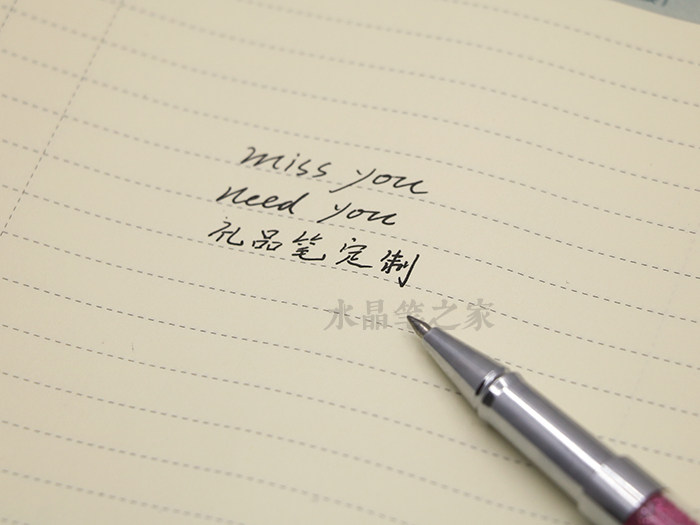 miss you
need you
礼品笔定制
水晶笔之家